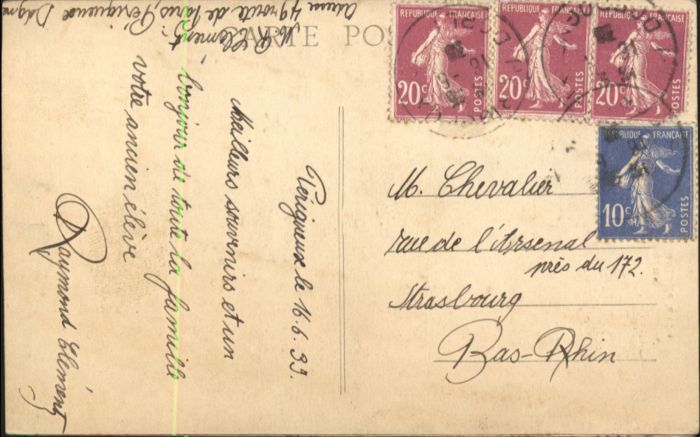 CARTE POS
49 route de Paris, Périgueux
Périgueux le 16.6.39.
Meilleurs souvenirs et un
bonjour de toute la famille
votre ancien élève
Raymond Clément
REPUBLIQUE FRANÇAISE
20c
POSTES
REPUBLIQUE FRANÇAISE
20c
POSTES
REPUBLIQUE FRANÇAISE
20c
POSTES
REPUBLIQUE FRANÇAISE
10c
POSTES
M. Chevalier
rue de l'Arsenal
près du 172.
Strasbourg
Bas-Rhin